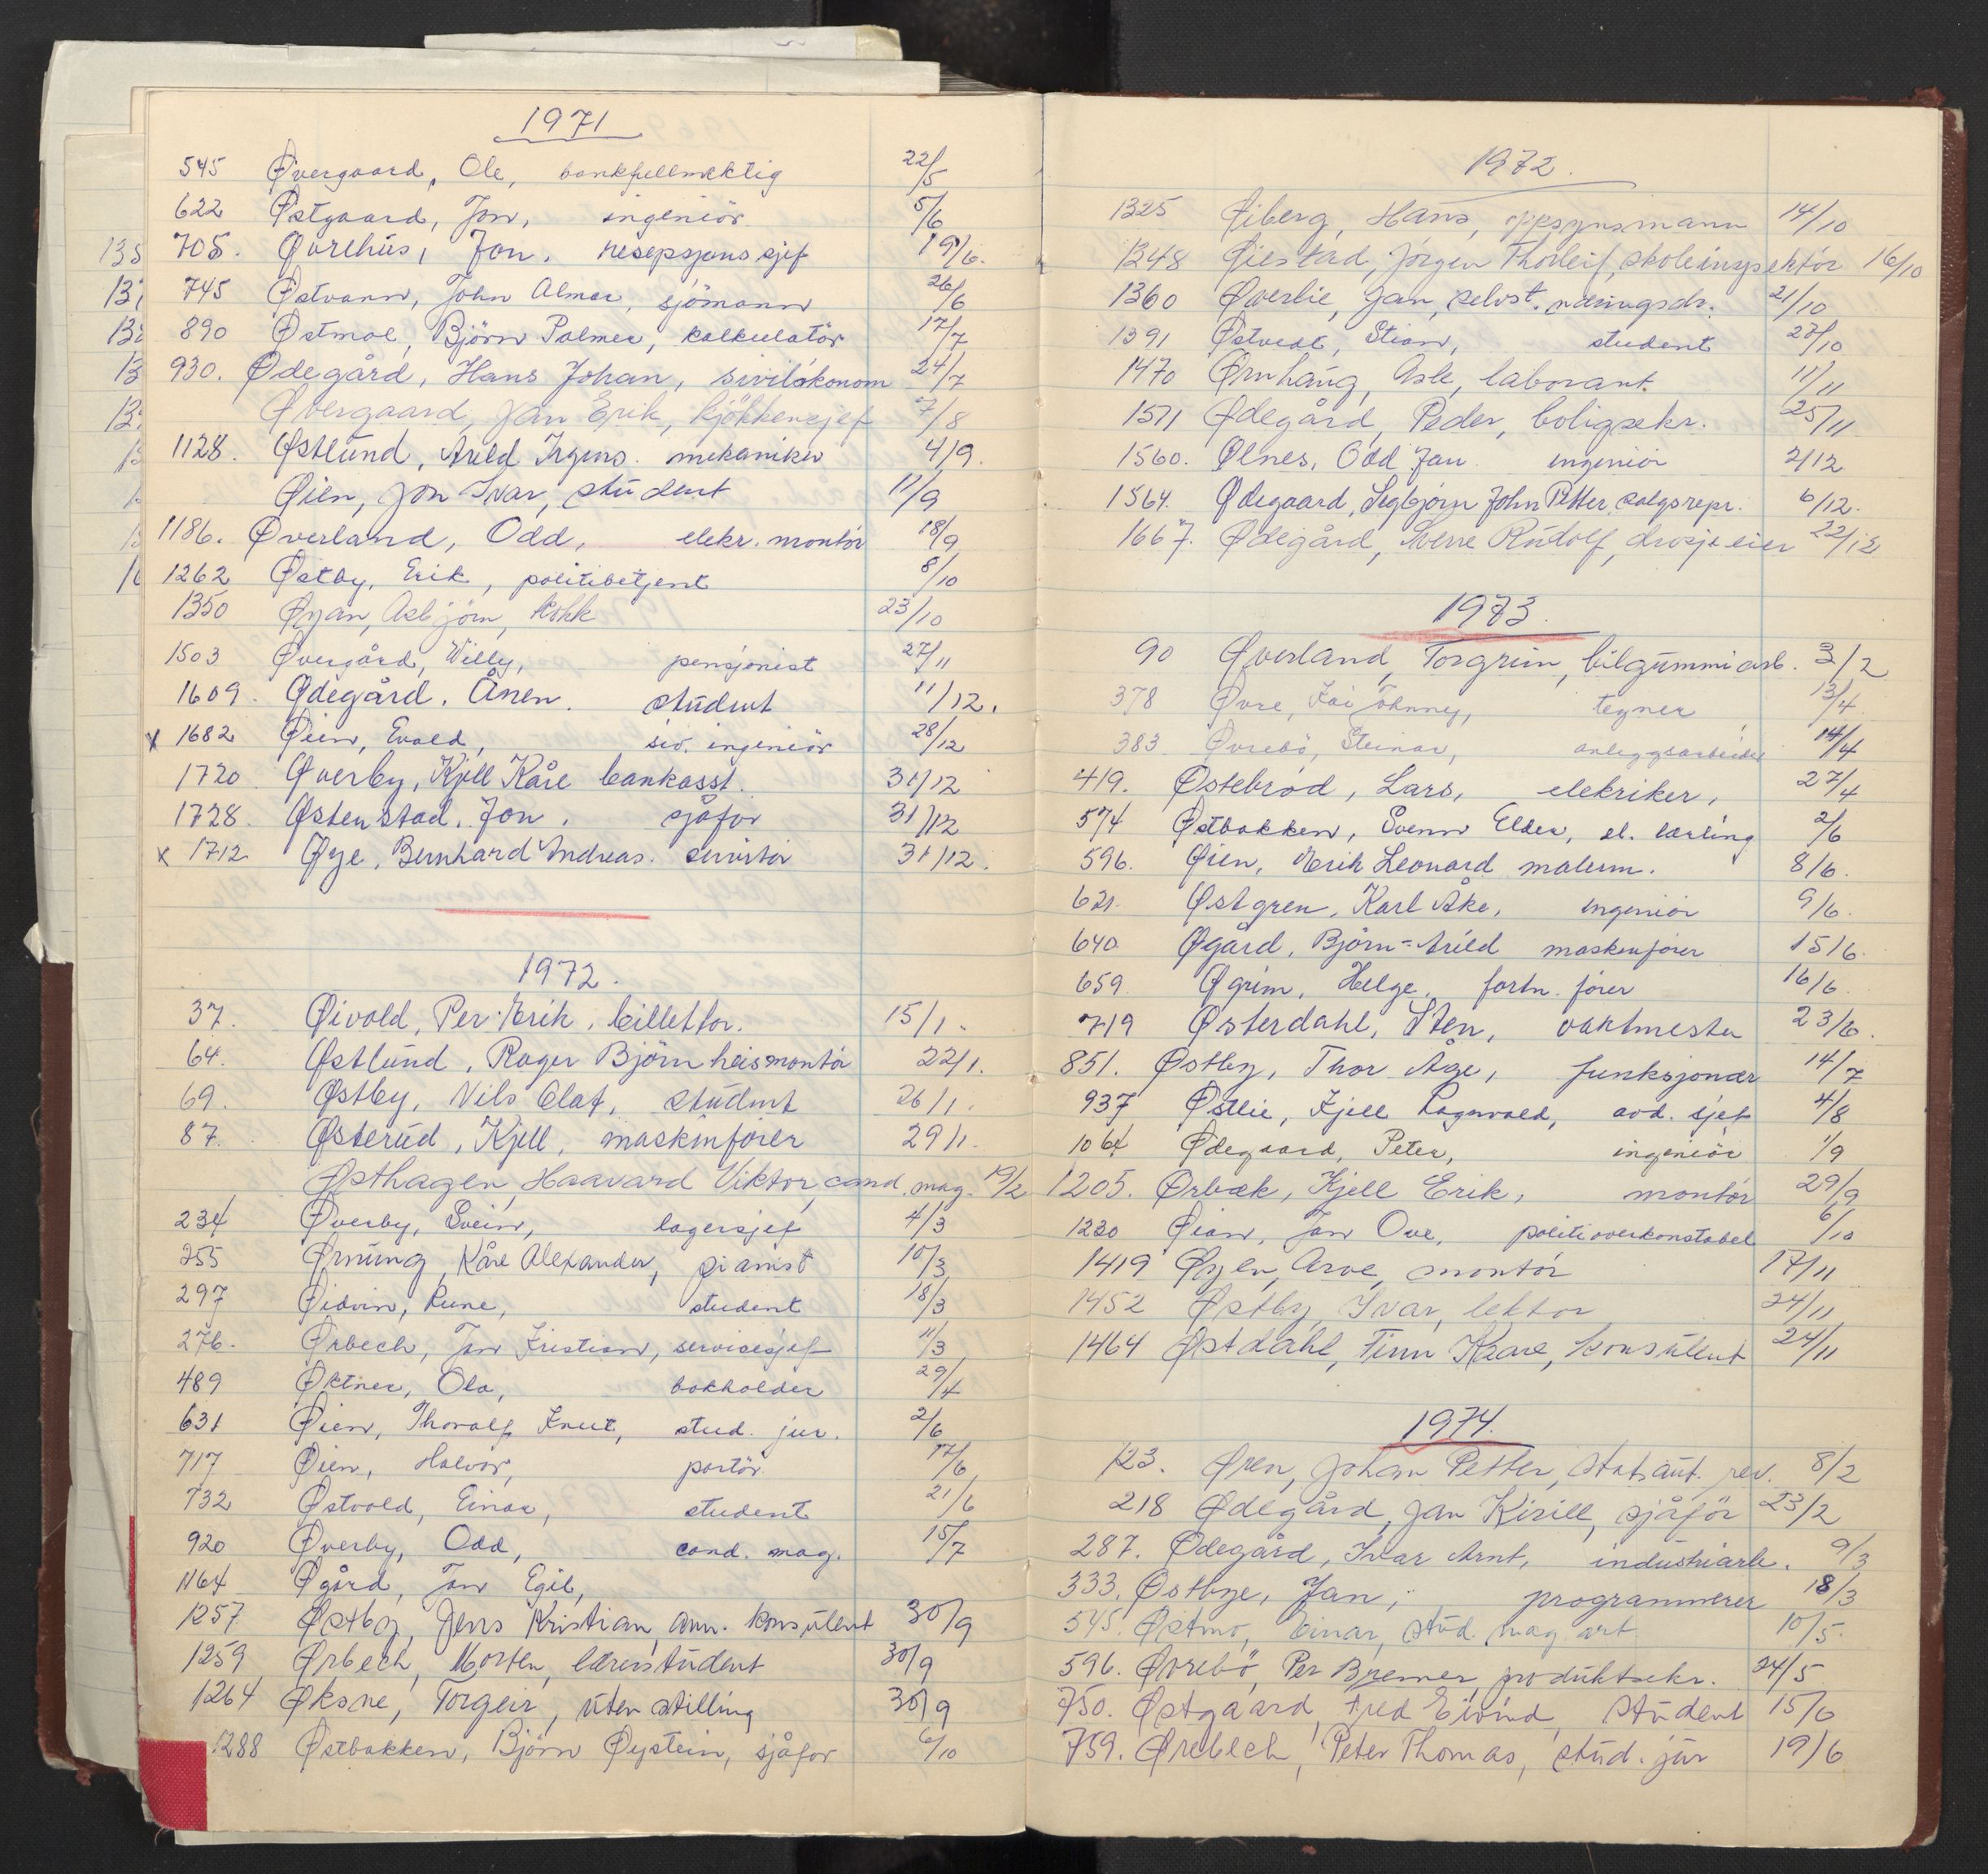 1971
545 Øvergaard, Ole, bankfullmektig 22/5
622 Østgaard, Jon, ingeniör 5/6
705. Øvrehus, Jon. resepsjonssjef 19/6.
745 Østvann, John Almar, sjömann 26/6
890 Østmoe, Björn Palmer, kalkulatör 17/7
930. Ødegård, Hans Johan, siviløkonom 24/7
Øvergaard, Jan Erik, kjökkensjef 7/8
1128. Østlund, Arild Irgens. mekaniker 4/9.
Øien, Jon Ivar, student 11/9
1186. Øverland, Odd, elekr. montör 18/9
1262 Østby, Erik, politibetjent 8/10
1350 Øyan, Asbjörn, kokk 23/10
1503 Øvergård, Willy, pensjonist 27/11
1609. Ødegård. Ånen. student 11/12.
x 1682 Øien, Evald, siv. ingeniör 28/12
1720 Øverby, Kjell Kåre bankasst. 31/12
1728. Østenstad. Jon. sjåför 31/12
x 1712 Øye, Bernhard Andreas. servitör 31/12.
1972.
37. Øivold, Per-Erik, billettör. 15/1.
64. Østlund, Roger Björn heismontör 22/1.
69. Østby, Nils Olaf, student 26/1.
87. Østerud, Kjell, maskinförer 29/1.
Østhagen, Haavard Viktor, cand. mag. 19/2
234 Øverby, Svein, lagersjef 4/3
255 Ørnung, Kåre Alexander, pianist 10/3
297 Øidvin, Rune, student 18/3
276. Ørbech, Jan Kristian, servicesjef 11/3
489 Øktner, Ola, bokholder 29/4
631 Øien, Thoralf Knut, stud. jur. 2/6
717 Øien, Halvor, portör 17/6
732 Østvold, Einar, student 21/6
920 Øverby, Odd, cand. mag. 15/7
1164 Øgård, Jan Egil,
1257 Østby, Jens Kristian, ann. konsulent 30/9
1259 Ørbech, Morten, lærerstudent 30/9
1264 Øksne, Torgeir, uten stilling 30/9
1288 Østbakken, Björn Øystein, sjåför 6/10
1972.
1325 Øiberg, Hans, oppsynsmann 14/10
1348 Øiestad, Jörgen Thorleif, skoleinspektör 16/10
1360 Øverlie, Jan, selvst. næringsdr. 21/10
1391 Østvedt, Stian, student 27/10
1470 Ørnhaug, Asle, laborant. 11/11
1511 Ødegård, Peder, boligsekr. 25/11
1560. Ølnes, Odd Jan ingeniör 2/12
1564. Ødegaard, Segbjörn John Petter, salgsrepr. 6/12.
1667. Ødegård, Sverre Rudolf, drosjeeier 22/12
1973.
90 Øverland, Torgrim, bilgummiarb. 3/2
378 Øvre, Kai Johnny, tegner 13/4
383. Øvrebö, Steinar, anleggsarbeider 14/4
419. Østebröd, Lars, elekriker, 27/4
574 Østbakken, Svenn Elder, el. lærling 2/6
596. Øien, Erik Leonard malerm. 8/6.
621. Østgren, Karl Åke, ingeniör 9/6.
640. Øgård, Björn-Arild maskinförer 15/6.
659. Øgrim, Helge, fortn. förer 16/6.
719 Østerdahl, Sten, vaktmester 23/6.
851. Østby, Thor Åge, funksjonær 14/7
937 Østlie, Kjell Ragnvald, avd. sjef 4/8
1064 Ødegaard, Peter, ingeniör 1/9
1205. Ørbæk, Kjell Erik, montör 29/9
1220 Øian, Jan Ove, politioverkonstabel 6/10
1419 Øyen, Arve, montör 17/11
1452 Østby, Ivar, lektor 24/11
1464 Østdahl, Finn Kaare, konsulent 24/11
1974.
123. Øren, Johan Petter, statsaut. rev. 8/2
218 Ødegård, Jan Kirill, sjåför 23/2
287. Ødegård, Ivar Arnt, industriarb. 9/3
333. Østbye, Jan, programmerer 18/3
545. Østmo, Einar, stud. mag. art 10/5.
596. Øvrebö, Per Bremer, produktsekr. 24/5
750. Østgaard, Fred Eivind, student 15/6
759. Ørebech, Peter Thomas, stud. jur 19/6